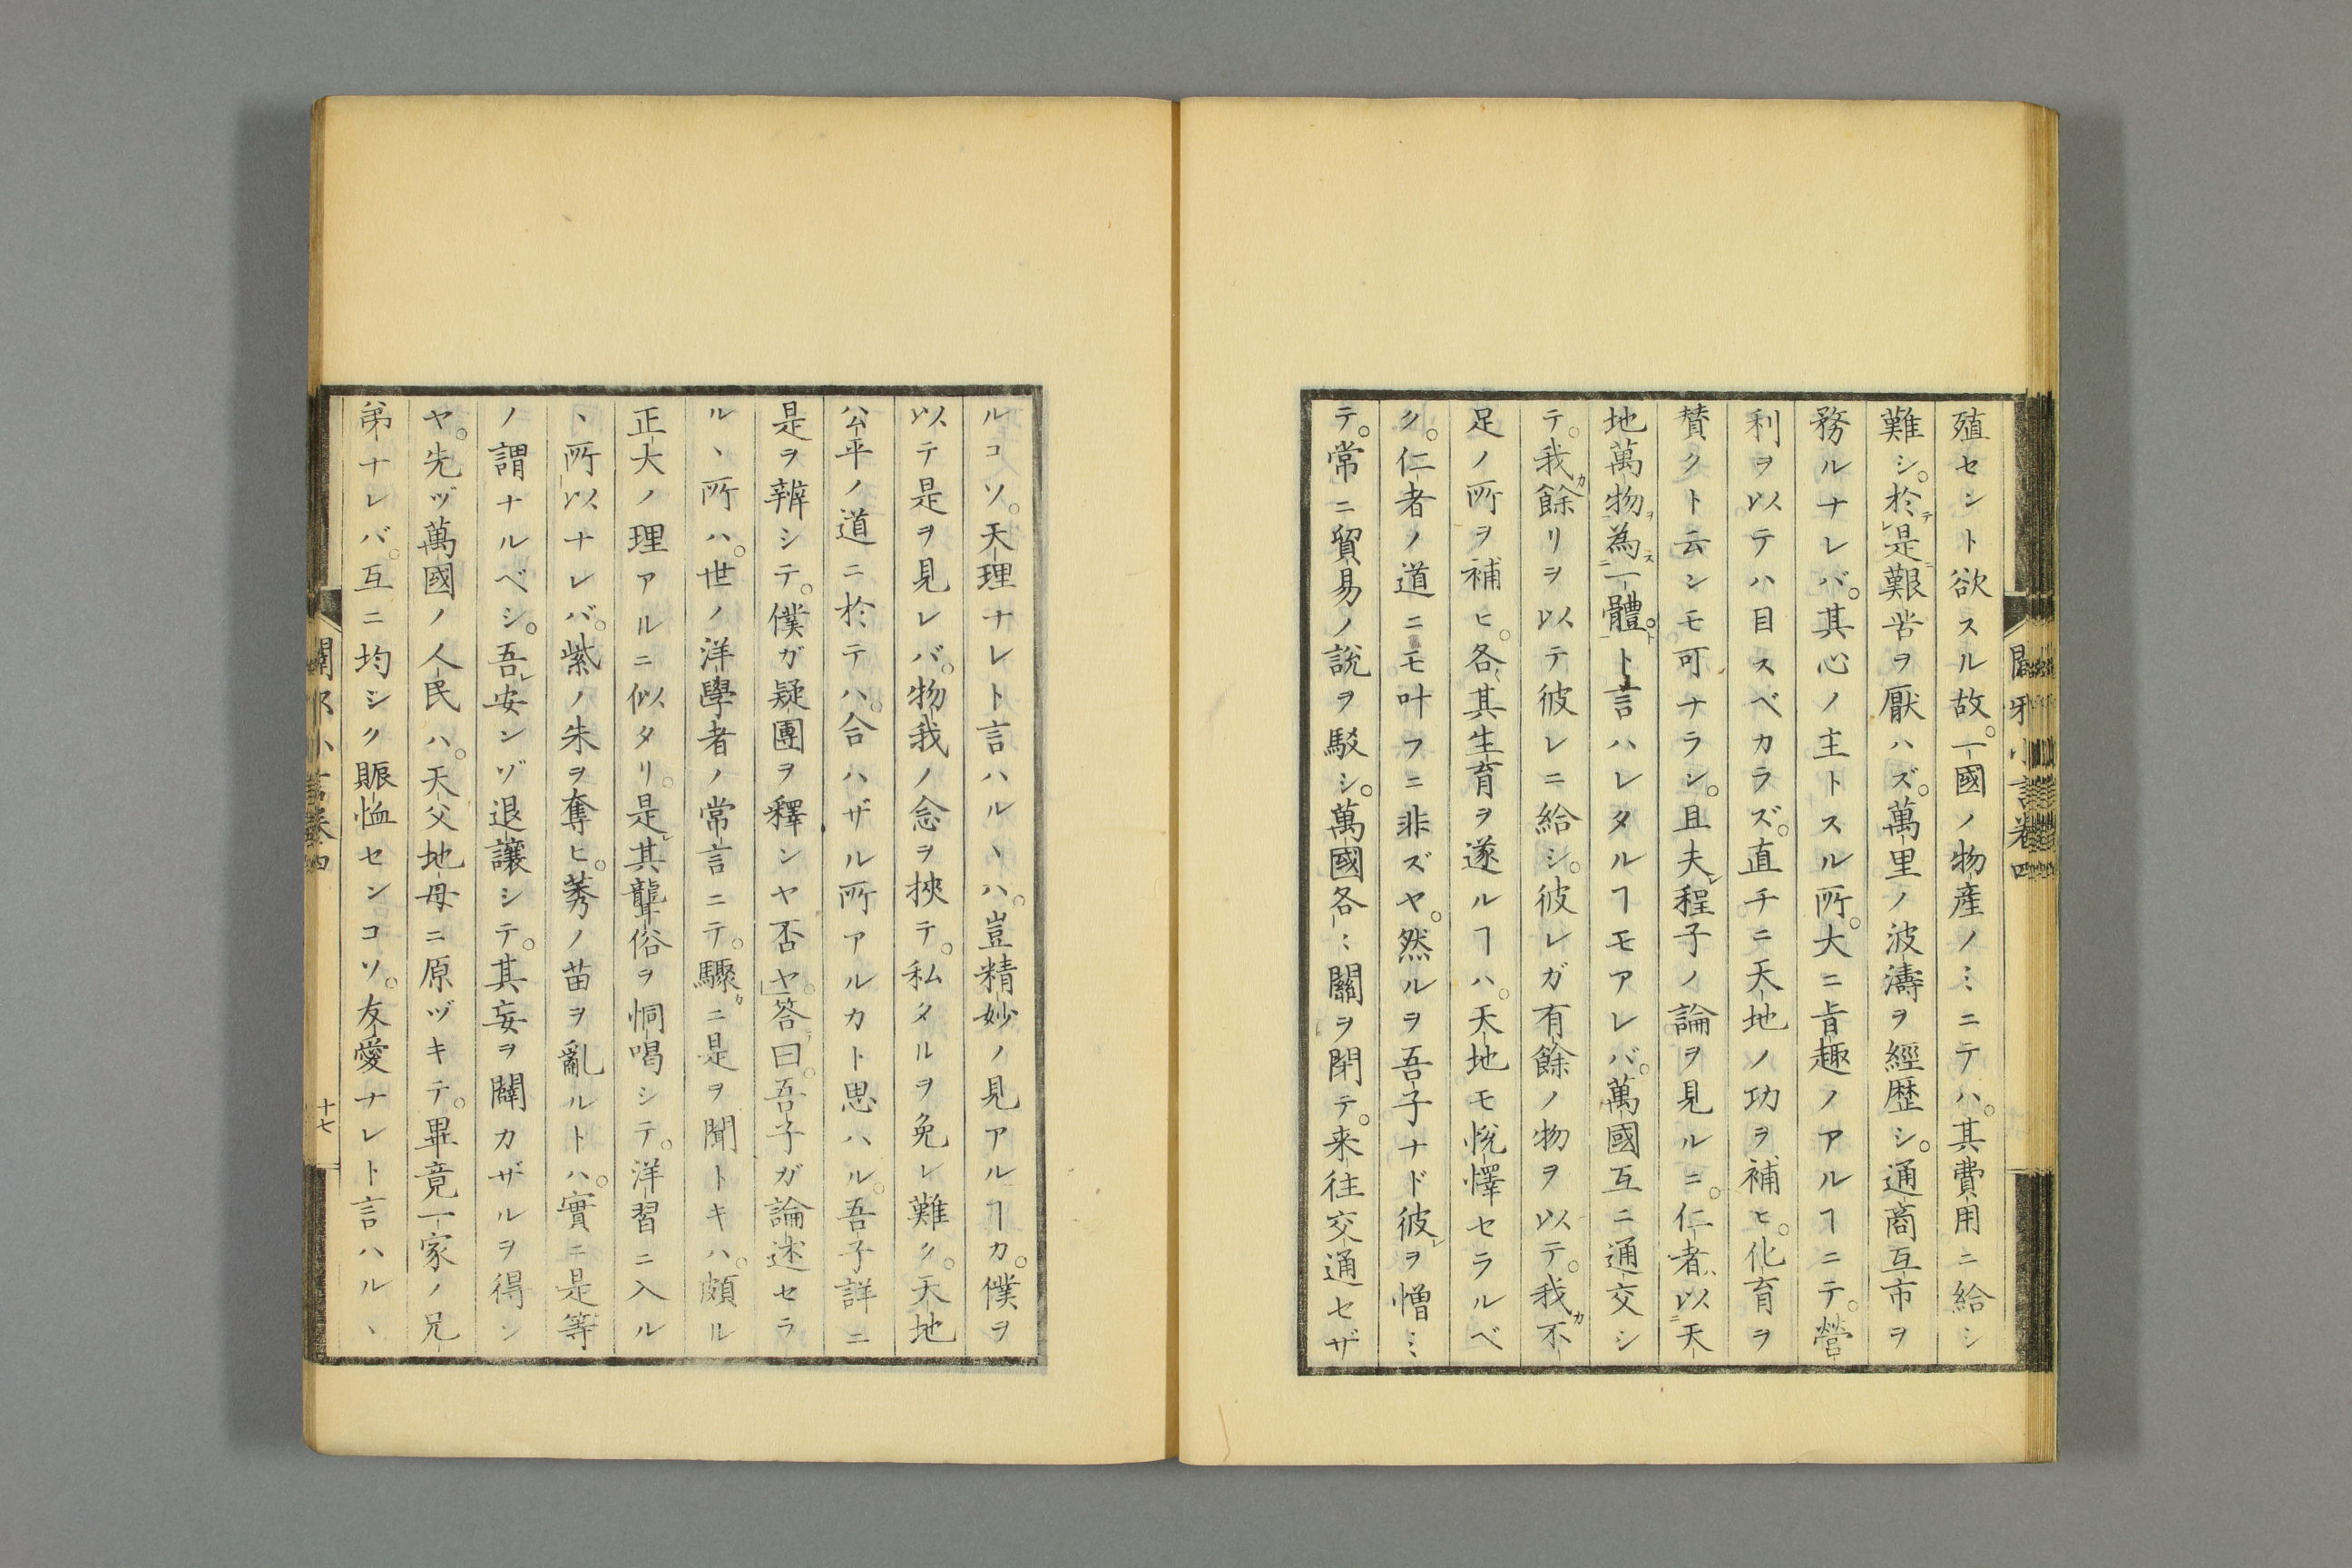 闢邪小言卷四
殖セント欲スル故。一國ノ物産ノミニテハ。其費用ニ給シ
難シ。於テㇾ是ニ艱苦ヲ厭ハズ。萬里ノ波濤ヲ經歴シ。通商互市ヲ
務ルナレバ。其心ノ主トスル所。大ニ旨趣ノアルヿニテ。營
利ヲ以テハ目スベカラズ。直チニ天地ノ功ヲ補ヒ。化育ヲ
賛クト云ンモ可ナラン。且夫レ程子ノ論ヲ見ルニ。仁者ハ以ニ天
地萬物ヲ為ス二一體ト。ト言ハレタルヿモアレバ。萬國互ニ通交シ
テ。我カ餘リヲ以テ彼レニ給シ。彼レガ有餘ノ物ヲ以テ。我カ不
足ノ所ヲ補ヒ。各〻其生育ヲ遂ルヿハ。天地モ悅懌セラルベ
ク。仁者ノ道ニモ叶フニ非ズヤ。然ルヲ吾子ナド彼レヲ憎ミ
テ。常ニ貿易ノ説ヲ駁シ。萬國各〻關ヲ閉テ。来往交通セザ
ルコソ。天理ナレト言ハルヽハ。豈精妙ノ見アルヿカ。僕ヲ
以テ是ヲ見レバ。物我ノ念ヲ挾テ。私タルヲ免レ難ク。天地
公平ノ道ニ於テハ。合ハザル所アルカト思ハル。吾子詳ニ
是ヲ辨シテ。僕ガ疑團ヲ釋ンヤ否ヤ。」答曰。吾子ガ論述セラ
ルヽ所ハ。世ノ洋學者ノ常言ニテ。驟カニ是ヲ聞トキハ。頗ル
正大ノ理アルニ似タリ。是レ其聾俗ヲ恫喝シテ。洋習ニ入ル
ヽ所以ナレバ。紫ノ朱ヲ奪ヒ。莠ノ苗ヲ亂ルトハ。實ニ是等
ノ謂ナルベシ。吾レ安ンゾ退讓シテ。其妄ヲ闢カザルヲ得ン
ヤ。先ヅ萬國ノ人民ハ。天父地母ニ原ヅキテ。畢竟一家ノ兄
弟ナレバ。互ニ均シク賑恤センコソ。友愛ナレト言ハルヽ
闢邪小言卷四
十七